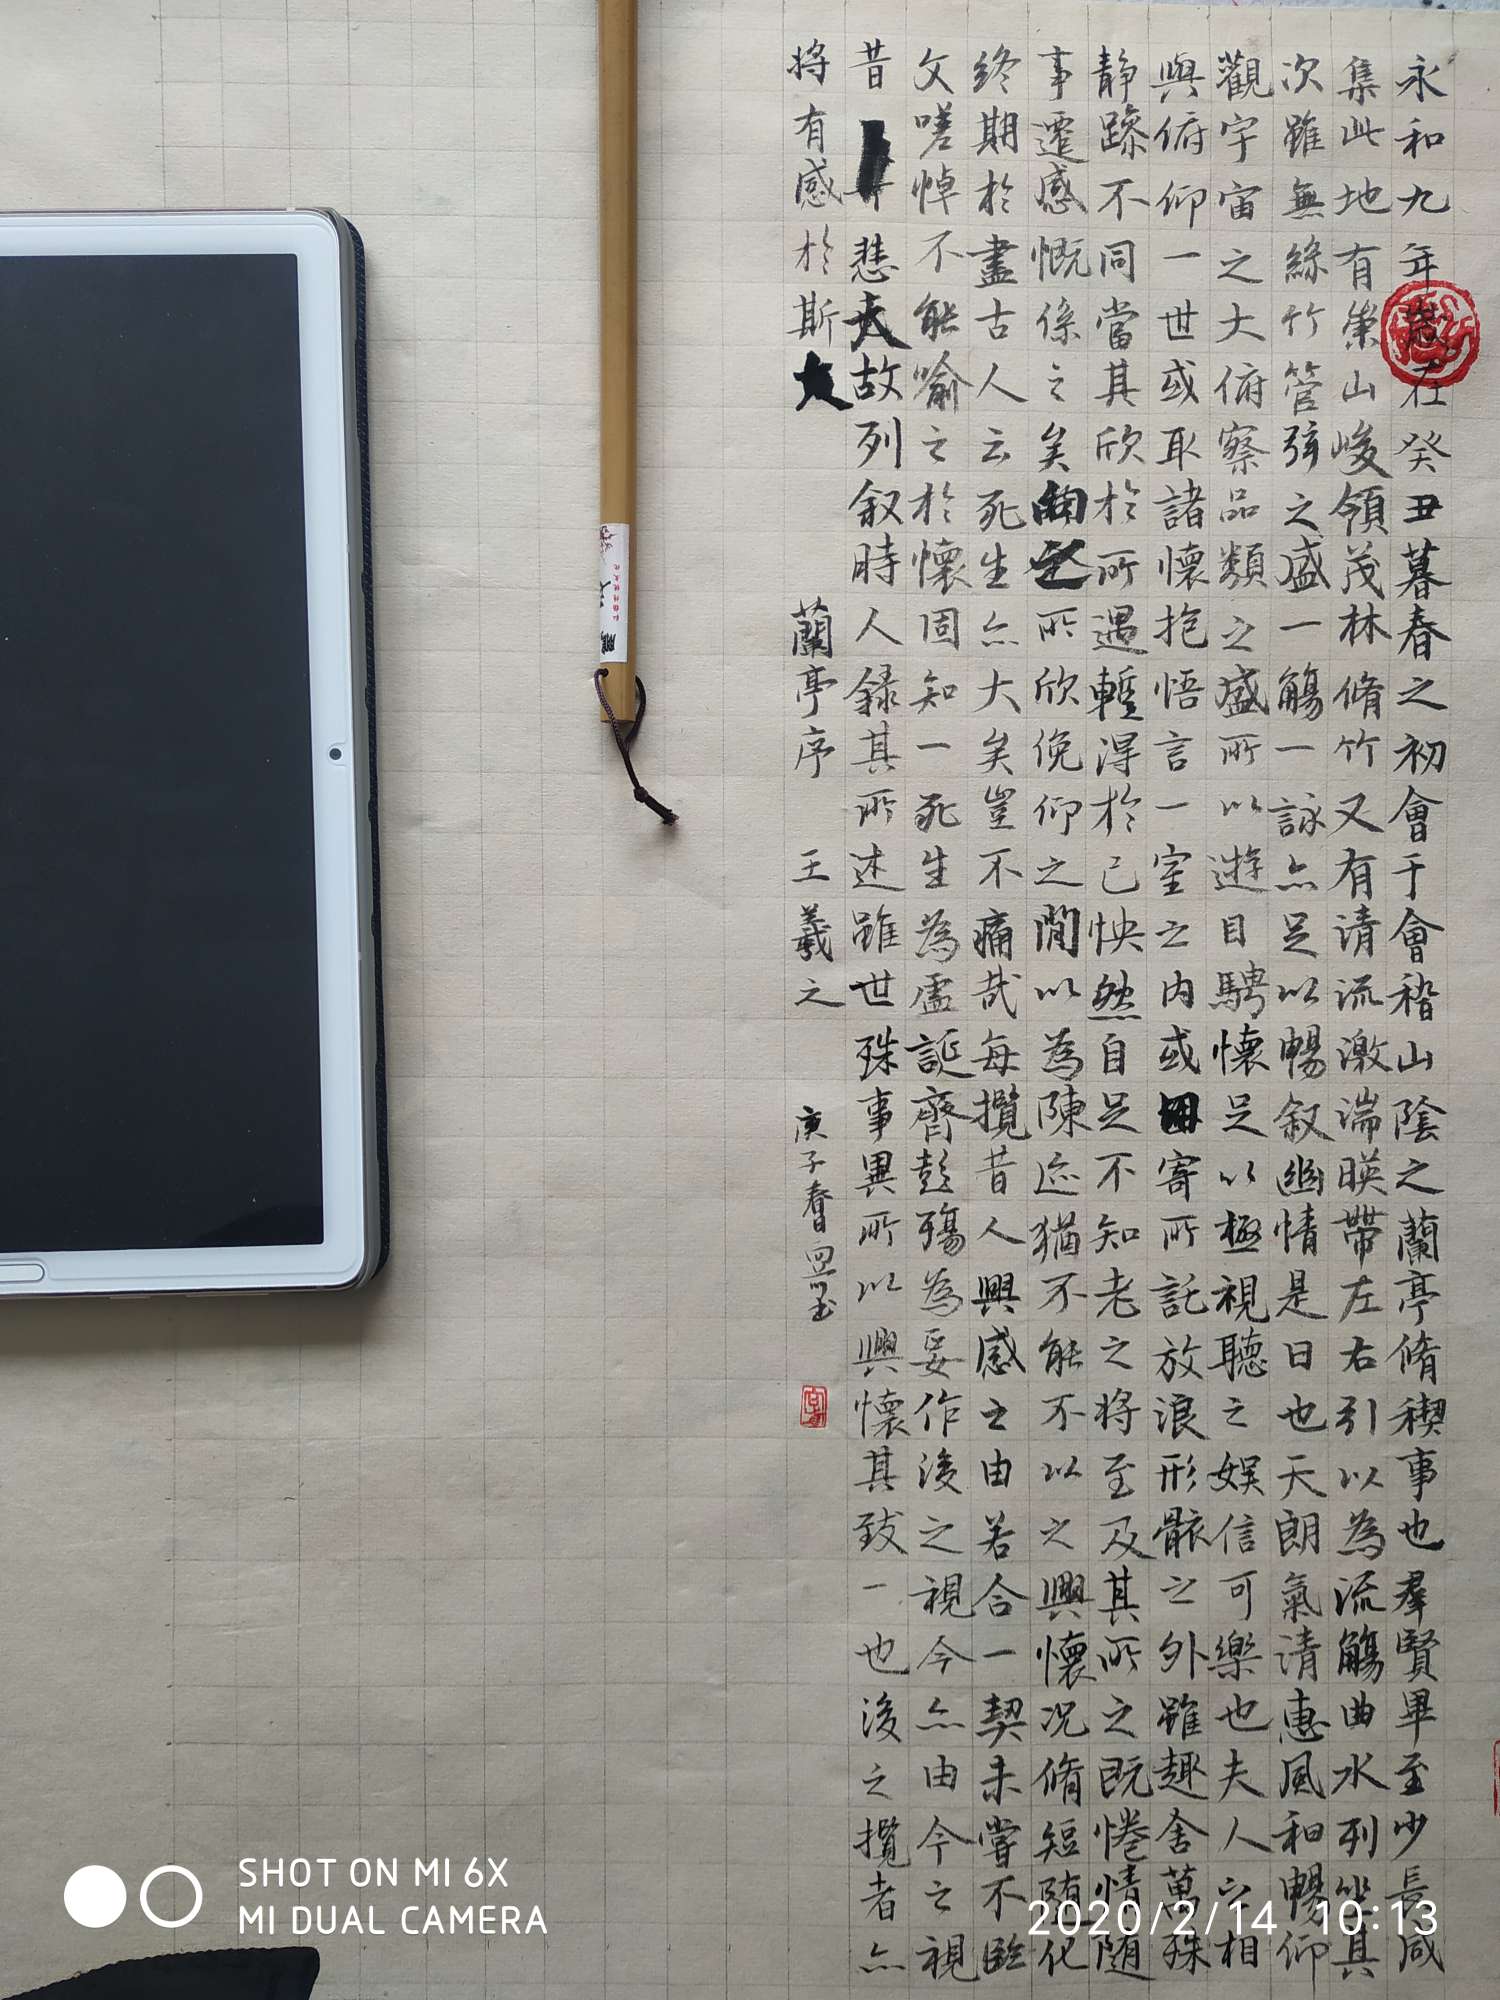 永和九年歲在癸丑暮春之初會于會稽山陰之蘭亭脩稧事也羣賢畢至少長咸
集此地有崇山峻領茂林脩竹又有清流激湍暎帶左右引以為流觴曲水列坐其
次雖無絲竹管弦之盛一觴一詠亦足以暢叙幽情是日也天朗氣清惠風和暢仰
觀宇宙之大俯察品類之盛所以遊目騁懷足以極視聽之娛信可樂也夫人之相
與俯仰一世或取諸懷抱悟言一室之內或因寄所託放浪形骸之外雖趣舍萬殊
静躁不同當其欣於所遇蹔得於己怏然自足不知老之将至及其所之既惓情随
事遷感慨係之矣向之所欣俛仰之閒以為陳迹猶不能不以之興懷况脩短随化
終期於盡古人云死生亦大矣豈不痛哉每攬昔人興感之由若合一契未嘗不臨
文嗟悼不能喻之於懷固知一死生為虛誕齊彭殤為妄作後之視今亦由今之視
昔悲夫故列叙時人錄其所述雖世殊事異所以興懷其致一也後之攬者亦
将有感於斯文 蘭亭序 王羲之 庚子春
SHOT ON MI 6X
MI DUAL CAMERA
2020/2/14 10:13